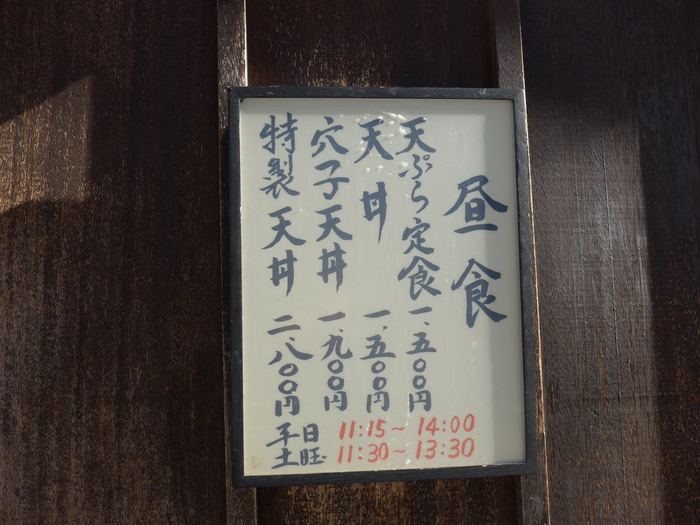 昼食
天ぷら定食 一、五〇〇円
天丼 一、五〇〇円
穴子天丼 一、九〇〇円
特製天丼 二、八〇〇円
平日 11:15~14:00
土旺 11:30~13:30